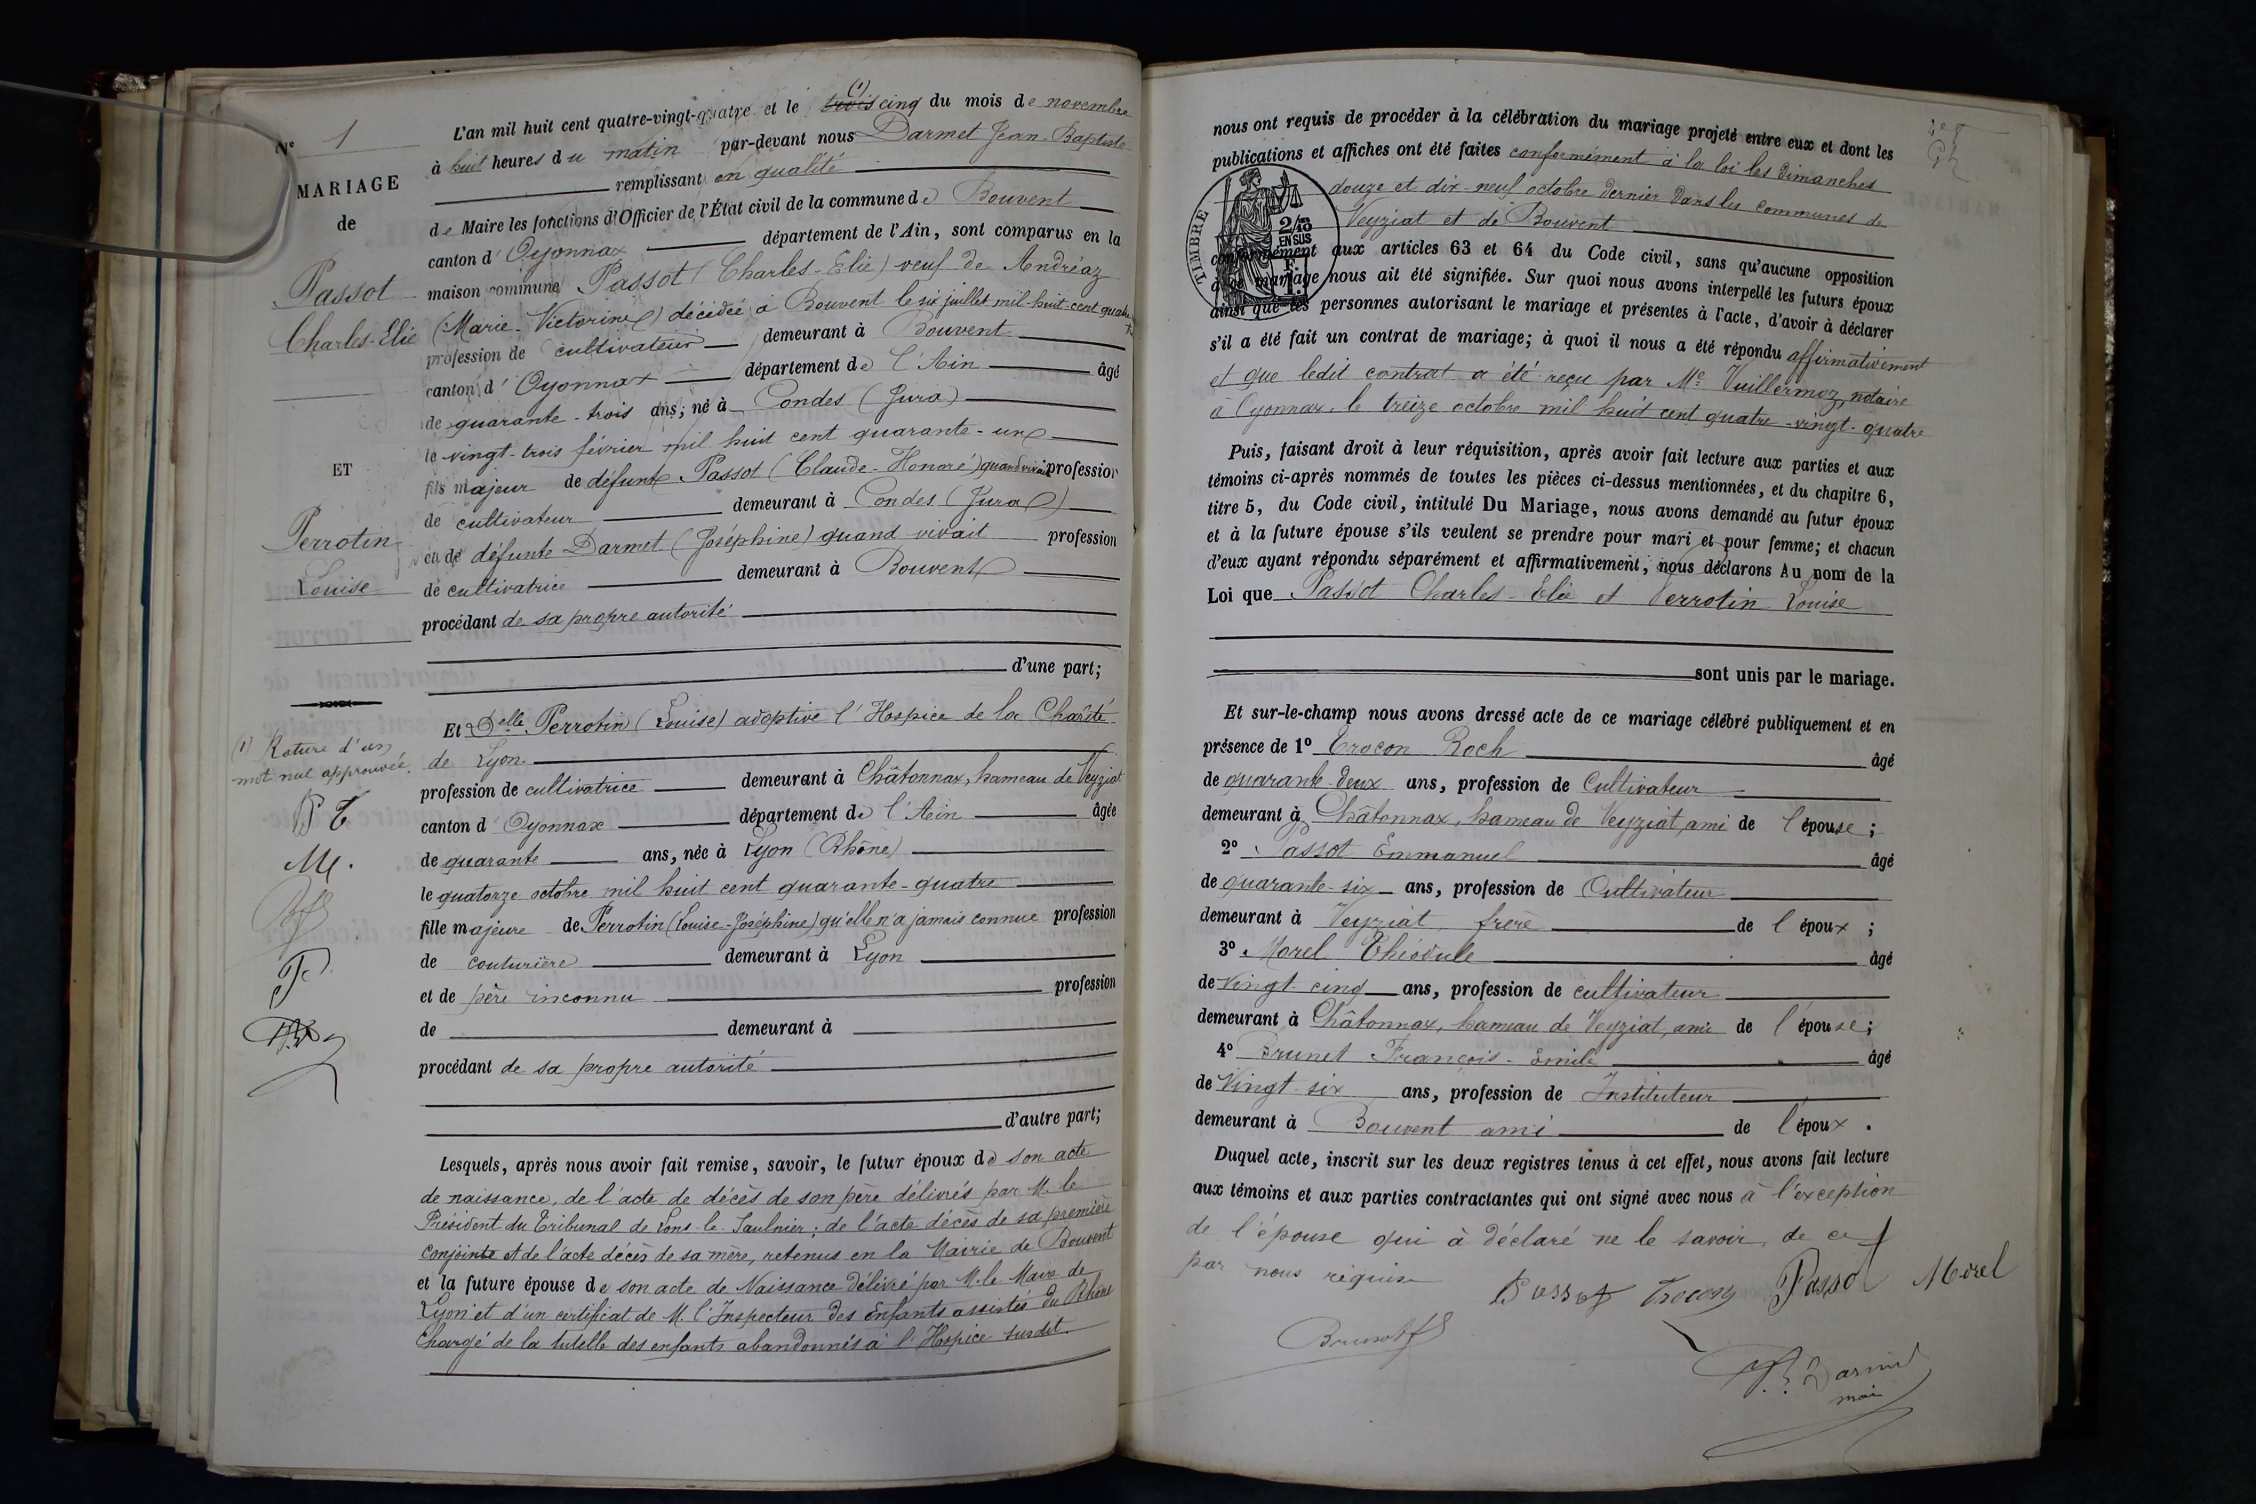 Nº 1
MARIAGE
de
Passot
Charles-Elie
ET
Perrotin
Louise
(1) Rature d'un
mot nul approuvée.
P T
M.
Bf
P
L'an mil huit cent quatre-vingt-quatre et le trois (1) cinq du mois de novembre
à huit heures du matin par-devant nous Darmet Jean-Baptiste
remplissant en qualité
de Maire les fonctions d'Officier de l'État civil de la commune de Bouvent
canton d'Oyonnax département de l'Ain, sont comparus en la
maison commune Passot (Charles-Elie) veuf de Andréaz
(Marie-Victorine) décédée à Bouvent le six juillet mil-huit-cent quatre
profession de cultivateur demeurant à Bouvent
canton d'Oyonnax département de l'Ain âgé
de quarante-trois ans, né à Condes (Jura)
le vingt-trois février mil huit cent quarante-un
fils majeur de défunt Passot (Claude-Honoré) quand vivait profession
de cultivateur demeurant à Condes (Jura)
et de défunte Darmet (Joséphine) quand vivait profession
de cultivatrice demeurant à Bouvent
procédant de sa propre autorité
d'une part;
Et Delle Perrotin (Louise) adoptive l'Hospice de la Charité
de Lyon
profession de cultivatrice demeurant à Châtonnax, hameau de Veyziat
canton d'Oyonnax département de l'Ain âgée
de quarante ans, née à Lyon (Rhône)
le quatorze octobre mil huit cent quarante-quatre
fille majeure de Perrotin (Louise-Joséphine) qu'elle n'a jamais connue profession
de couturière demeurant à Lyon
et de père inconnu profession
de demeurant à
procédant de sa propre autorité
d'autre part;
Lesquels, après nous avoir fait remise, savoir, le futur époux de son acte
de naissance, de l'acte de décès de son père délivrés par M. le
Président du Tribunal de Lons-le-Saulnier; de l'acte décès de sa première
conjointe et de l'acte décès de sa mère, retenus en la Mairie de Bouvent
et la future épouse de son acte de Naissance délivré par M. le Maire de
Lyon et d'un certificat de M. l'Inspecteur des Enfants assistés du Rhône
chargé de la tutelle des enfants abandonnés à l'Hospice susdit.
nous ont requis de procéder à la célébration du mariage projeté entre eux et dont les
publications et affiches ont été faites conformément à la loi les Dimanches
douze et dix-neuf octobre dernier dans les communes de
Veyziat et de Bouvent
TIMBRE
2/10
EN SUS
1 F.
conformément aux articles 63 et 64 du Code civil, sans qu'aucune opposition
à ce mariage nous ait été signifiée. Sur quoi nous avons interpellé les futurs époux
ainsi que les personnes autorisant le mariage et présentes à l'acte, d'avoir à déclarer
s'il a été fait un contrat de mariage; à quoi il nous a été répondu affirmativement
et que ledit contrat a été reçu par Me Vuillermoz, notaire
à Oyonnax, le treize octobre mil huit cent quatre-vingt-quatre
Puis, faisant droit à leur réquisition, après avoir fait lecture aux parties et aux
témoins ci-après nommés de toutes les pièces ci-dessus mentionnées, et du chapitre 6,
titre 5, du Code civil, intitulé Du Mariage, nous avons demandé au futur époux
et à la future épouse s'ils veulent se prendre pour mari et pour femme; et chacun
d'eux ayant répondu séparément et affirmativement, nous déclarons Au nom de la
Loi que Passot Charles-Elie et Perrotin Louise
sont unis par le mariage.
Et sur-le-champ nous avons dressé acte de ce mariage célébré publiquement et en
présence de 1º Trocon Roch âgé
de quarante-deux ans, profession de Cultivateur
demeurant à Châtonnax, hameau de Veyziat, ami de l'épouse;
2º Passot Emmanuel âgé
de quarante-six ans, profession de Cultivateur
demeurant à Veyziat, frère de l'époux;
3º Morel Théodule âgé
de Vingt-cinq ans, profession de cultivateur
demeurant à Châtonnax, hameau de Veyziat, ami de l'épouse;
4º Brunet François-Emile âgé
de Vingt-six ans, profession de Instituteur
demeurant à Bouvent ami de l'époux.
Duquel acte, inscrit sur les deux registres tenus à cet effet, nous avons fait lecture
aux témoins et aux parties contractantes qui ont signé avec nous à l'exception
de l'épouse qui à déclaré ne le savoir, de ce
par nous requise
Passot Trocon Passot Morel
Brunet f
Darmet
maire